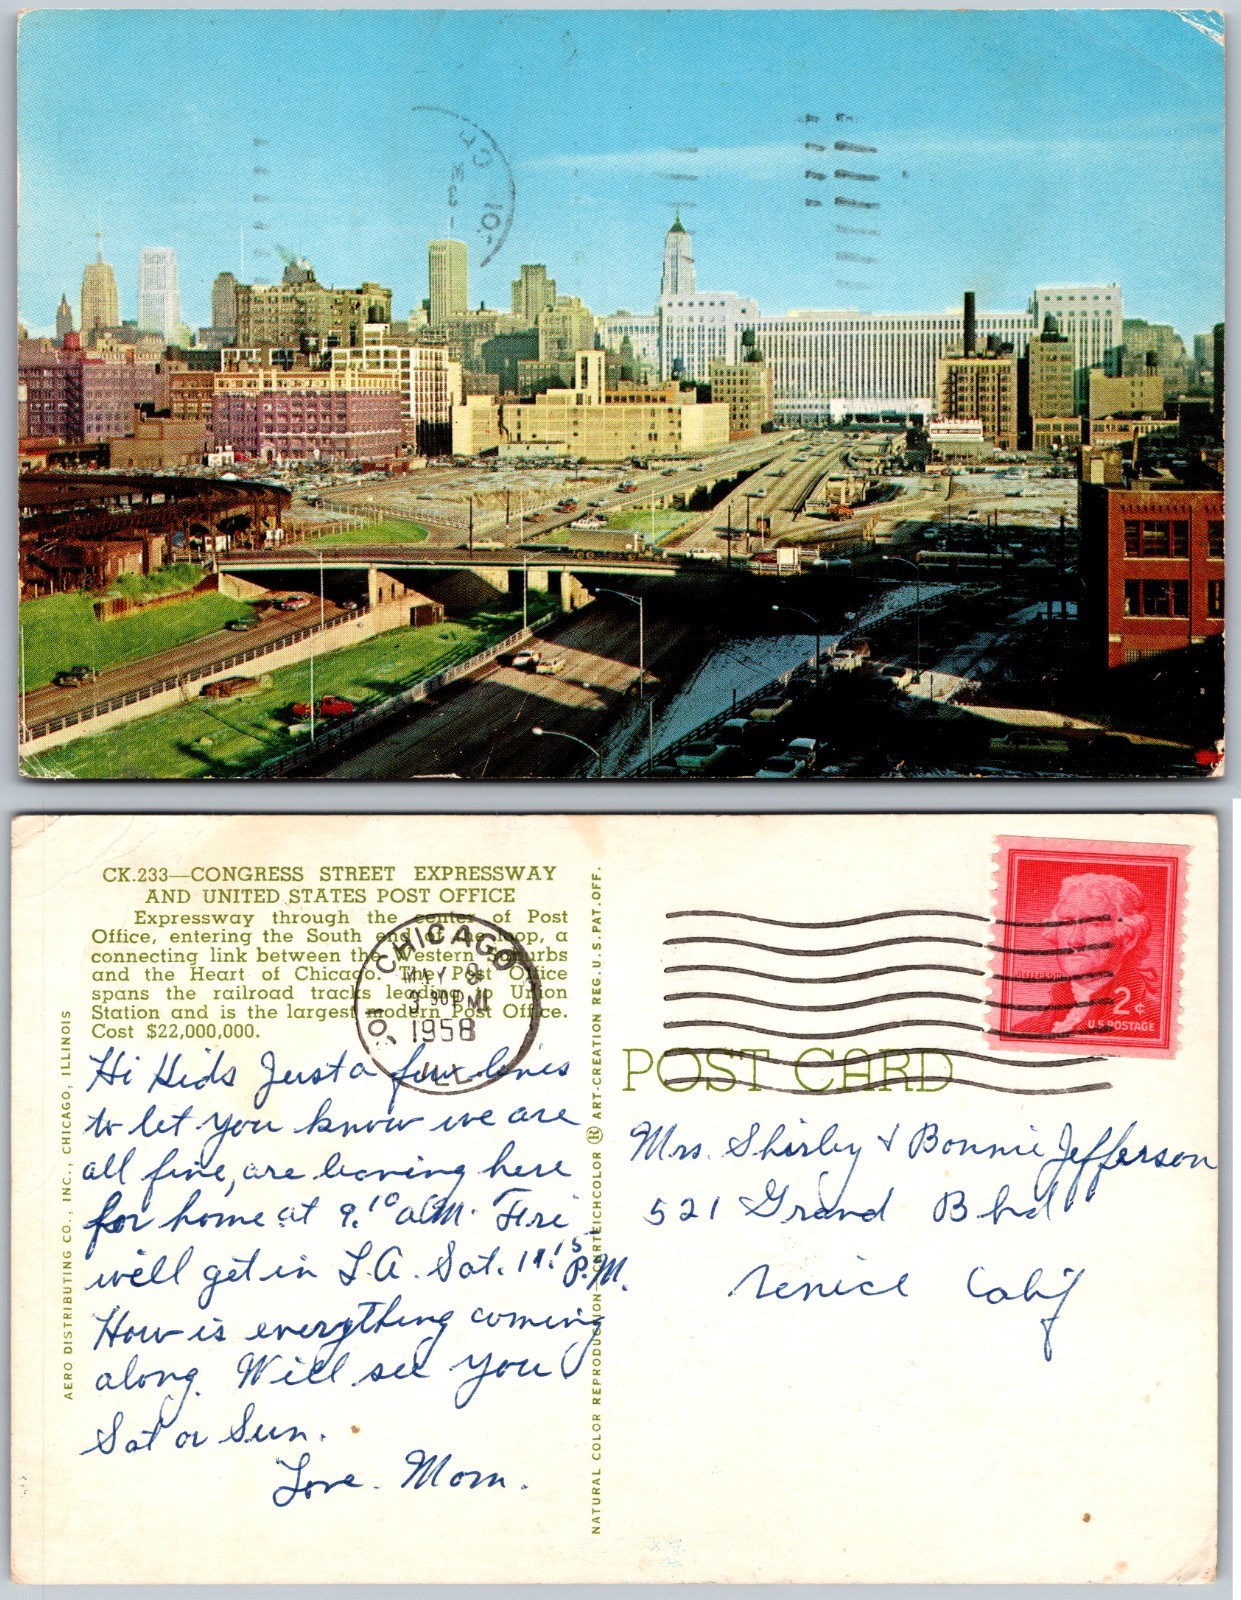 CK.233—CONGRESS STREET EXPRESSWAY
AND UNITED STATES POST OFFICE
Expressway through the center of Post
Office, entering the South end of the Loop, a
connecting link between the Western Suburbs
and the Heart of Chicago. The Post Office
spans the railroad tracks leading to Union
Station and is the largest modern Post Office.
Cost $22,000,000.
CHICAGO
MAY 8
3 30 PM
1958
ILL.
Hi Kids Just a few lines
to let you know we are
all fine, are leaving here
for home at 9:10 a.M. Fri
we'll get in L.A. Sat. 11:15 P.M.
How is everything coming
along. Will see you
Sat or Sun.
Love. Mom.
AERO DISTRIBUTING CO., INC., CHICAGO, ILLINOIS
NATURAL COLOR REPRODUCTION—CURTEICHCOLOR ® ART-CREATION REG. U.S. PAT. OFF.
JEFFERSON
2¢
U.S. POSTAGE
POST CARD
Mrs. Shirley & Bonnie Jefferson
521 Grand Blvd
Venice Calif